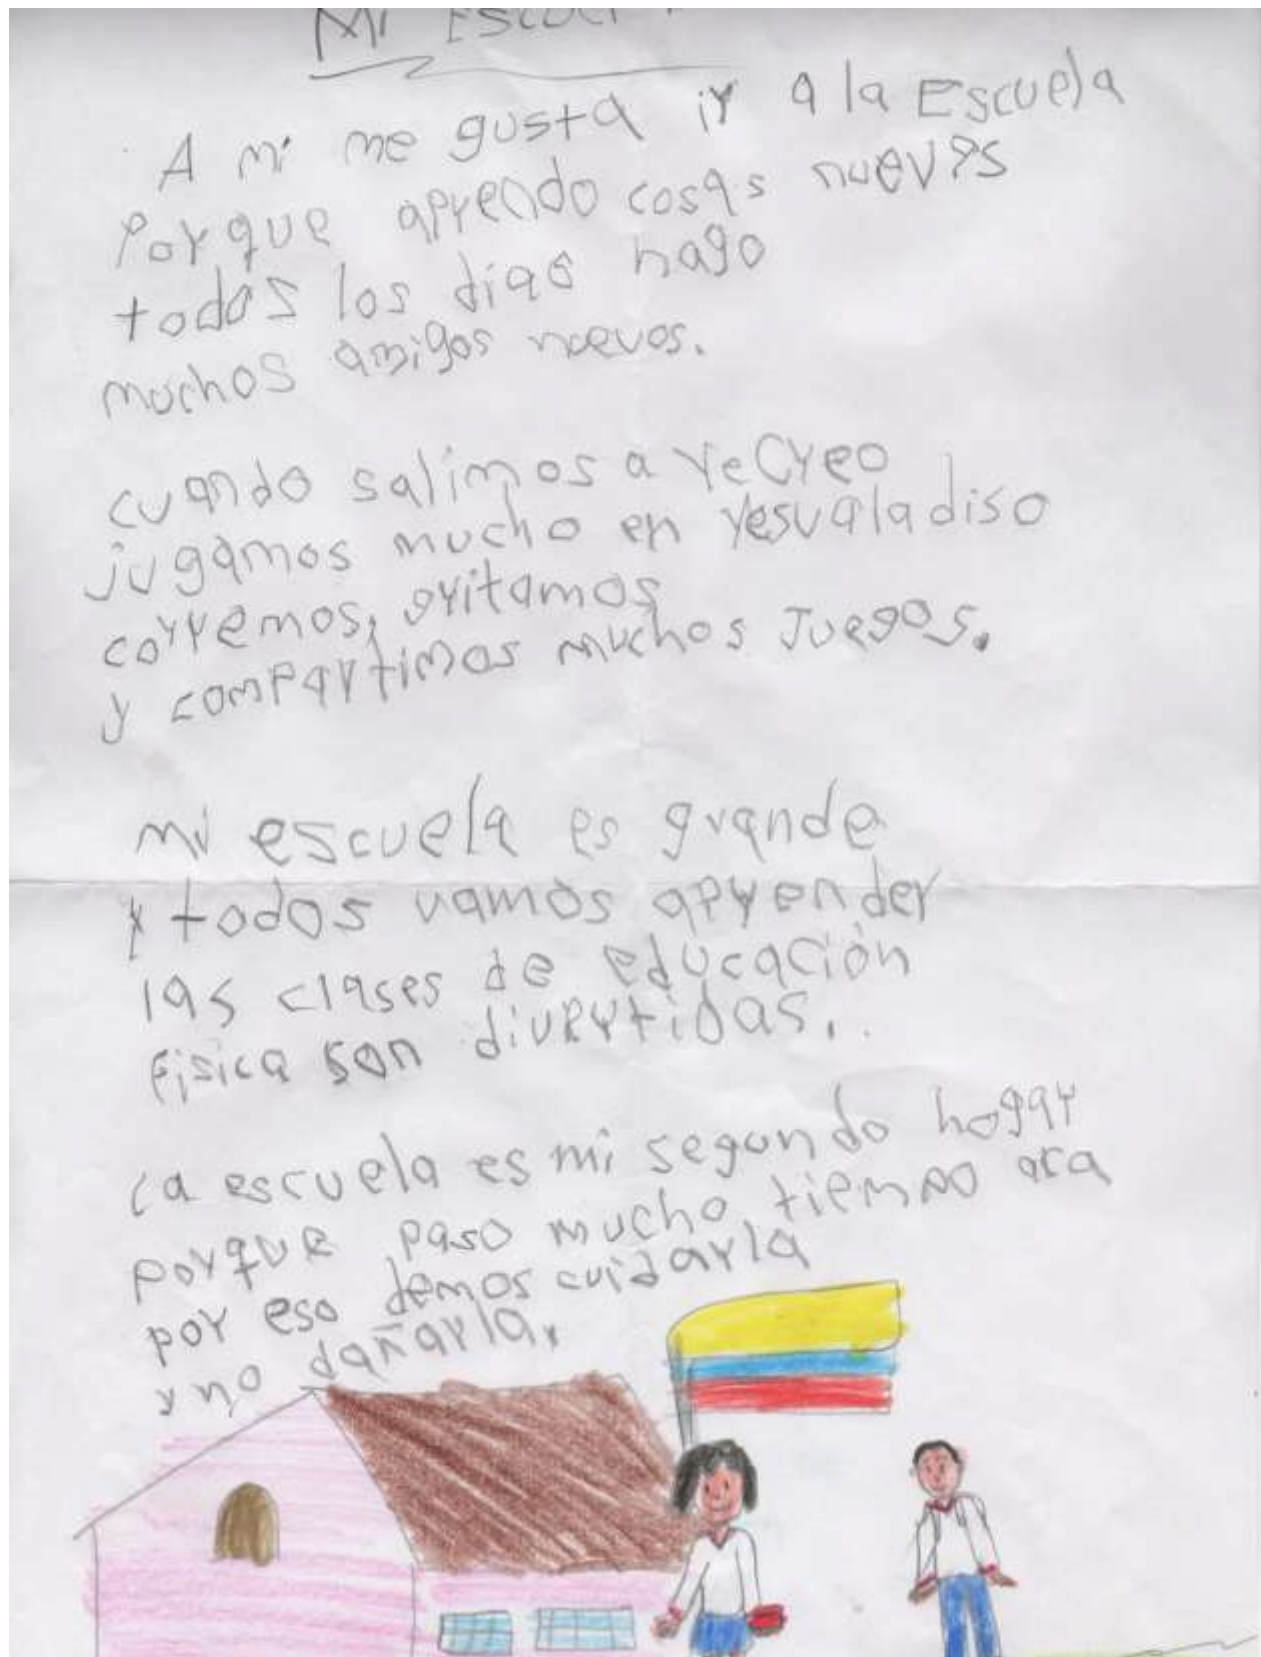 Mi Escuel
A mi me gusta ir a la Escuela
Porque aprendo cosas nuevas
todos los dias hago
muchos amigos nuevos.
cuando salimos a recreo
jugamos mucho en resvaladiso
corremos, gritamos
y compartimos muchos Juegos.
mi escuela es grande
y todos vamos aprender
las clases de educación
fisica son divertidas.
La escuela es mi segundo hogar
porque paso mucho tiempo aca
por eso demos cuidarla
y no dañarla.